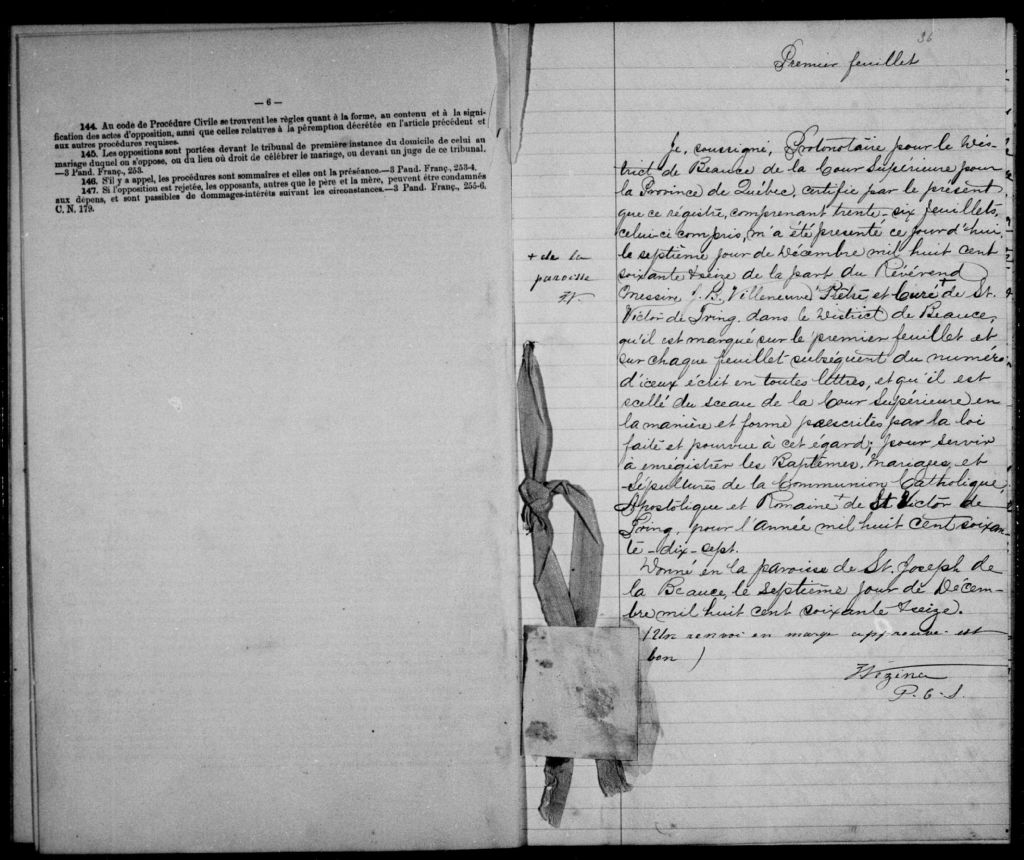 — 6 —
144. Au code de Procédure Civile se trouvent les règles quant à la forme, au contenu et à la signi-
fication des actes d'opposition, ainsi que celles relatives à la péremption décrétée en l'article précédent et
aux autres procédures requises.
145. Les oppositions sont portées devant le tribunal de première instance du domicile de celui au
mariage duquel on s'oppose, ou du lieu où droit de célébrer le mariage, ou devant un juge de ce tribunal.
—3 Pand. Franç., 253.
146. S'il y a appel, les procédures sont sommaires et elles ont la préséance.—3 Pand. Franç., 253-4.
147. Si l'opposition est rejetée, les opposants, autres que le père et la mère, peuvent être condamnés
aux dépens, et sont passibles de dommages-intérêts suivant les circonstances.—3 Pand. Franç., 255-6.
C. N. 179.
36
Premier feuillet
Je, soussigné, Protonotaire pour le Dis-
trict de Beauce de la Cour Supérieure pour
la Province de Québec, certifie par le présent
que ce régistre, comprenant trente-six feuillets,
celui-ci compris, m'a été présenté ce jour d'hui,
le septième jour de Décembre mil huit cent
soixante & seize de la part du Révérend
Messire J. B. Villeneuve Prêtre et Curé + de St.
Victor de Tring, dans le District de Beauce,
qu'il est marqué sur le premier feuillet et
sur chaque feuillet subséquent du numéro
d'iceux écrit en toutes lettres, et qu'il est
scellé du sceau de la Cour Supérieure en
la manière et forme prescrites par la loi
faite et pourvue à cet égard; pour servir
à enrégistrer les Baptêmes, Mariages et
Sépultures de la Communion Catholique,
Apostolique et Romaine + de St Victor de
Tring, pour l'Année mil huit cent soixan-
te-dix-sept.
Donné en la paroisse de St. Joseph de
la Beauce, le Septième jour de Décem-
bre mil huit cent soixante & seize.
(Un renvoi en marge approuvé est
bon)
Vézina
P. C. S.
+ de la
paroisse